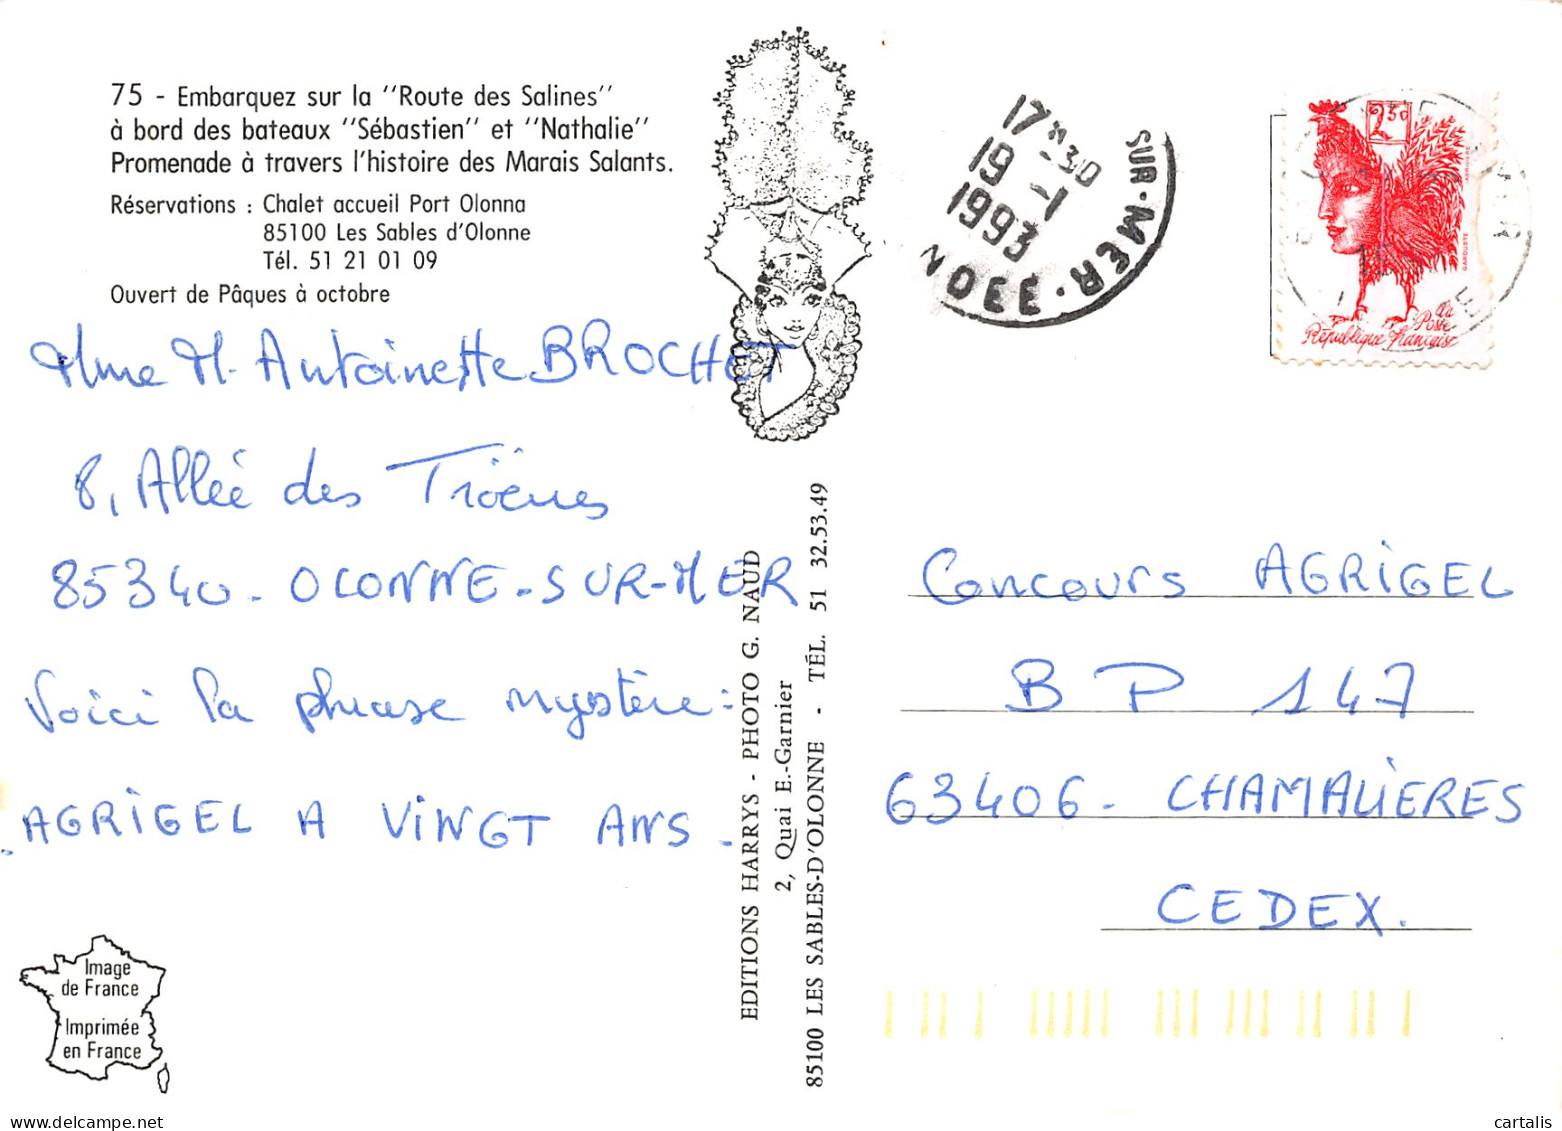 75 - Embarquez sur la "Route des Salines"
à bord des bateaux "Sébastien" et "Nathalie"
Promenade à travers l'histoire des Marais Salants.
Réservations : Chalet accueil Port Olonna
85100 Les Sables d'Olonne
Tél. 51 21 01 09
Ouvert de Pâques à octobre
Mme M. Antoinette BROCHET
8, Allée des Troènes
85340 - OLONNE-SUR-MER
Voici la phrase mystère :
AGRIGEL A VINGT ANS.
Image
de France
Imprimée
en France
EDITIONS HARRYS - PHOTO G. NAUD
2, Quai E.-Garnier
85100 LES SABLES-D'OLONNE - TÉL. 51 32.53.49
17H30
19 -1
1993
SUR-MER
NDEE
2,30
GAROUSTE
La
Poste
République Française
Concours AGRIGEL
BP 147
63406 - CHAMALIERES
CEDEX.
cartalis